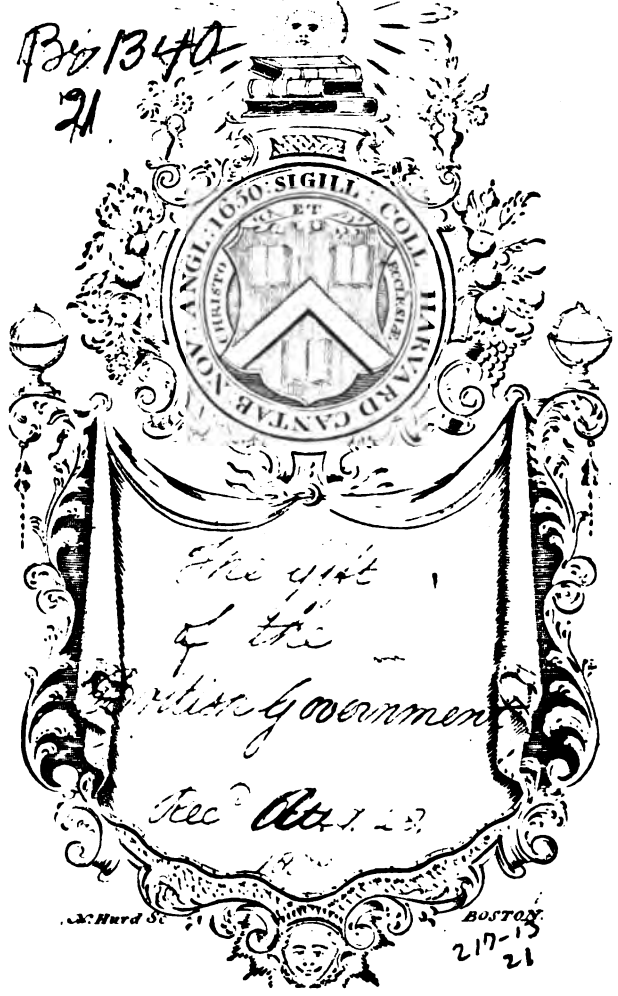 21
SIGILL : COLL HARVARD CANTAB : NOV : ANGL : 1650 :
ET
CHRISTO
ECCLESIÆ
The gift
of the
British Government
Rec^d
N. Hurd Sc
BOSTON.
217-15
21